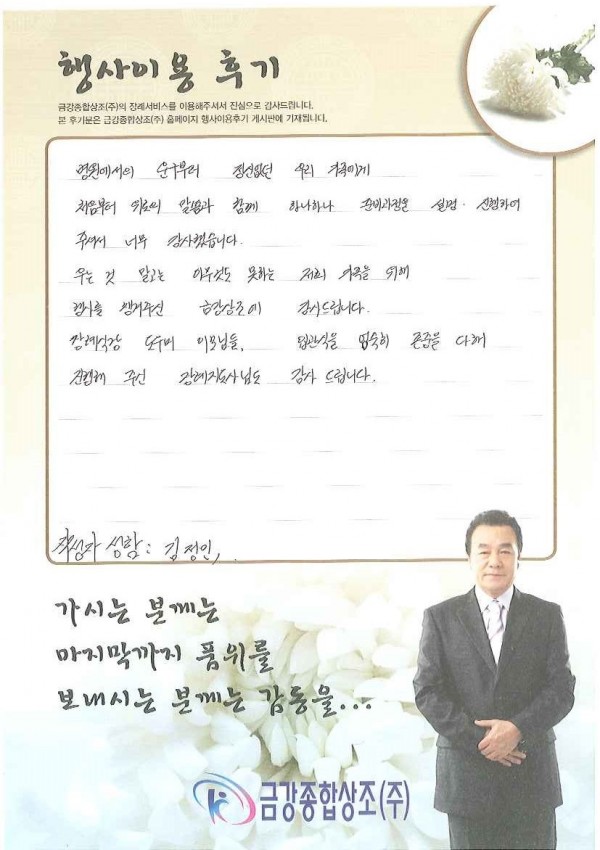 행사이용 후기
금강종합상조(주)의 장례서비스를 이용해주셔서 진심으로 감사드립니다.
본 후기문은 금강종합상조(주) 홈페이지 행사이용후기 게시판에 기재됩니다.
병원에서의 운구부터 정신없던 우리 가족에게
처음부터 위로의 말씀과 함께 하나하나 준비과정을 설명·진행하여
주셔서 너무 감사했습니다.
우는 것 말고는 아무것도 못하는 저희 가족을 위해
행사를 챙겨주신 금강상조에 감사드립니다.
장례식장 도우미 이모님들, 입관식을 엄숙히 존중을 다해
진행해 주신 장례지도사님도 감사 드립니다.
작성자 성함: 김정인,
가시는 분께는
마지막까지 품위를
보내시는 분께는 감동을...
금강종합상조(주)